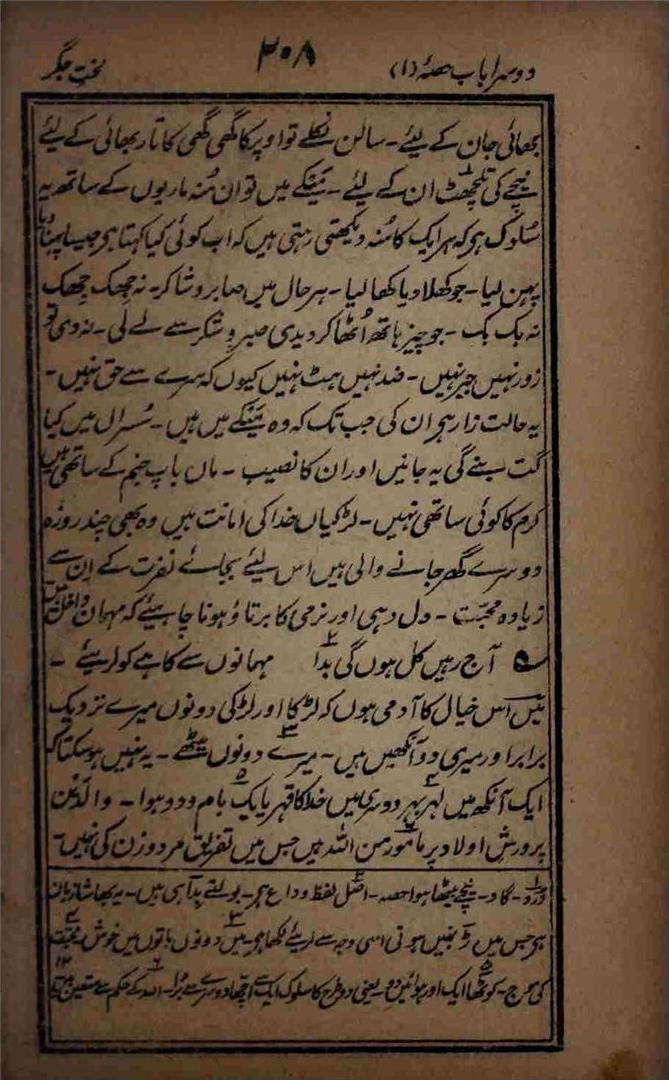 دوسرا باب حصہ (۱)
۳۰۸
لخت جگر
بھائی جان کے لیئے - سالن نکلے تو اوپر کا گھی گھی کا تار بھائی کے لیئے
نیچے کی تلچھٹ ان کے لیئے - میکے میں تو ان مُنہ ماریوں کے ساتھ یہ
سُلوک ہی کہ ہر ایک کا مُنہ دیکھتی رہتی ہیں کہ اب کوئی کیا کہتا ہی جیسا پہنا دیا
پہن لیا - جو کھلا دیا کھا لیا - ہر حال میں صابر و شاکر - نہ جھک جھک
نہ بک بک - جو چیز ہاتھ اُٹھا کر دیدی صبر و شکر سے لے لی - نہ دی تو
زور نہیں جبر نہیں - ضد نہیں ہٹ نہیں کیوں کہ سرے سے حق نہیں -
یہ حالت زار ہی ان کی جب تک کہ وہ میکے میں ہیں - سُسرال میں کیا
گت بنے گی یہ جانیں اور ان کا نصیب - ماں باپ جنم کے ساتھی ہیں
کرم کا کوئی ساتھی نہیں - لڑکیاں خدا کی امانت ہیں وہ بھی چند روزہ
دوسرے گھر جانے والی ہیں اس لیئے بجائے نفرت کے اِن سے
زیادہ محبّت - دل دہی اور نرمی کا برتاؤ ہونا چاہیئے کہ مہمان داخل ہیں
؎ آج رہیں کل ہوں گی بدا ۲ مہمانوں سے کاہے کو لڑیئے -
میں اس خیال کا آدمی ہوں کہ لڑکا اور لڑکی دونوں میرے نزدیک
برابر اور میری دو آنکھیں ہیں - میرے ۳ دونوں میٹھے - یہ نہیں ہو سکتا کہ
ایک آنکھ میں لہر بہر ۴ دوسری میں خدا کا قہر یا یک بام ۵ و دو ہوا - والدین
پرورشِ اولاد پر مامور ۶ من اللہ ہیں جس میں تفریق مرد و زن کی نہیں -
۱ دُرد - گاد - نیچے بیٹھا ہوا حصہ - ۲ اصل لفظ وداع ہی - بولتے بِدا ہی ہیں - یہ بھاشا زبان
ہی جس میں ڑ نہیں ہوتی اسی وجہ سے لریئے لکھا ہی - ۳ میں دونوں باتوں میں خوش ۴ محبت
کی موج - ۵ کوٹھا ایک اور ہوائیں دو یعنی دو طرح کا سلوک ایک سے اچھا دوسرے سے بُرا - ۶ اللہ کے حکم سے متعین ہیں ۱۲